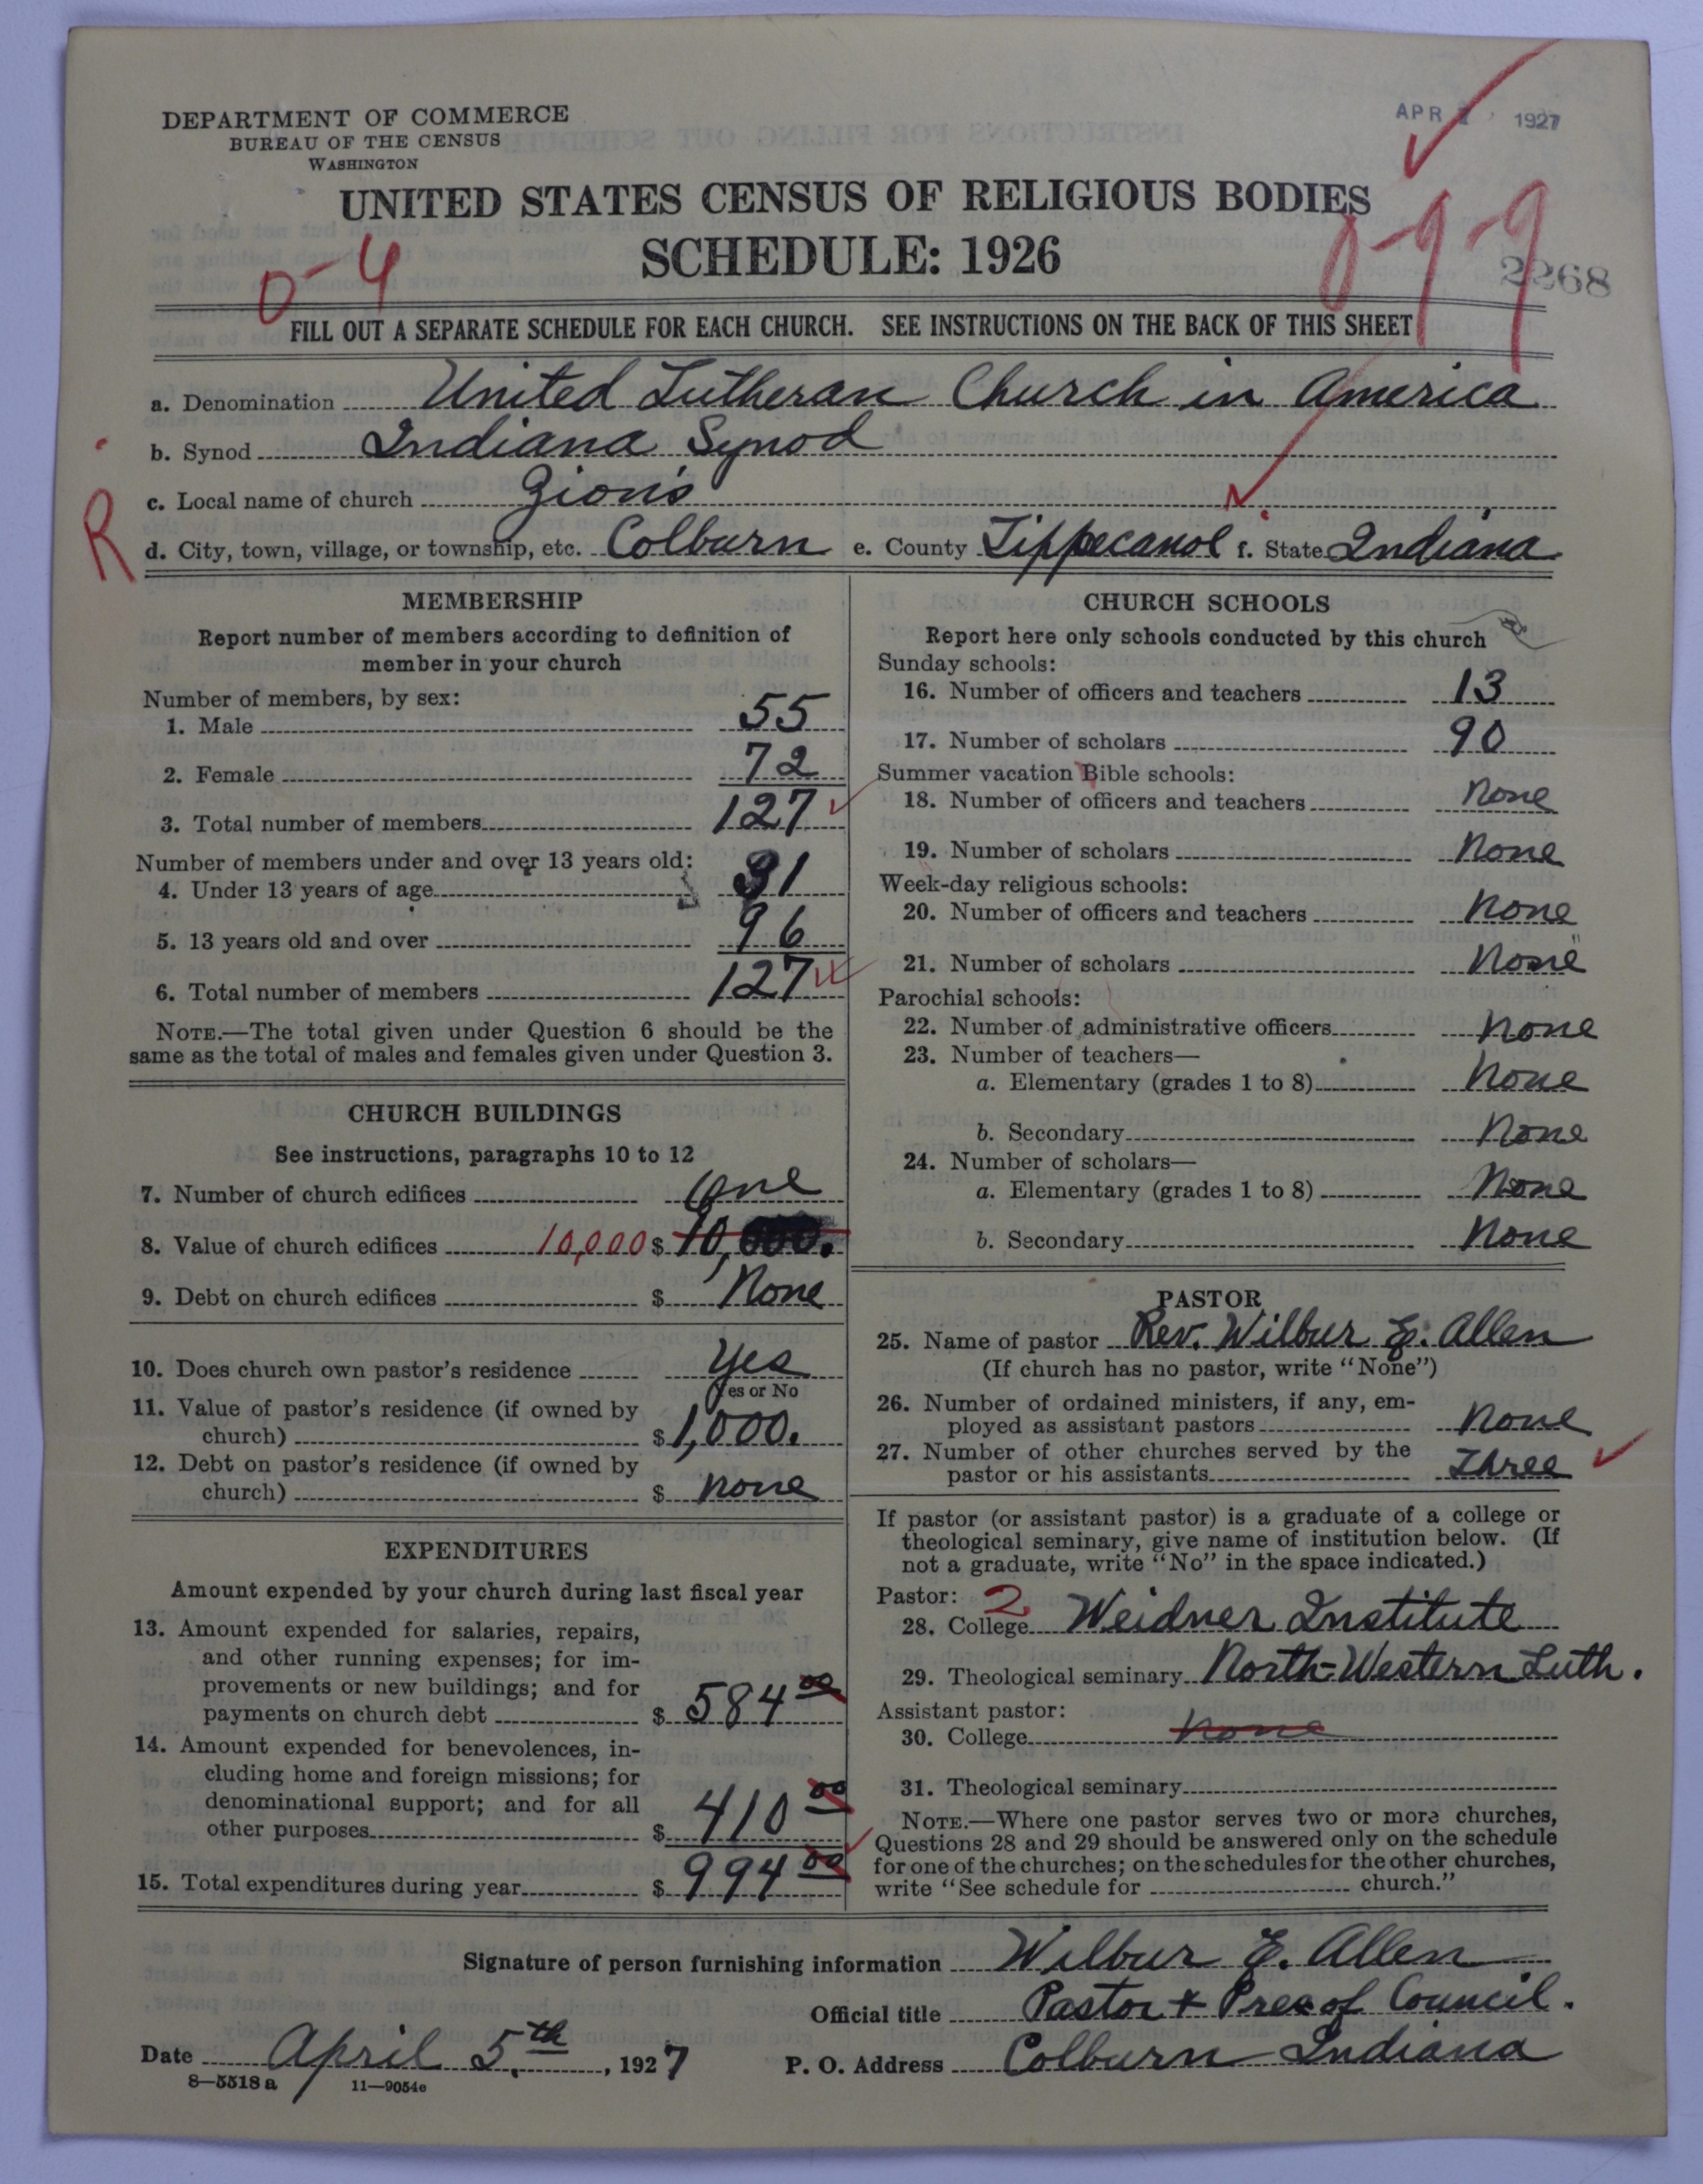 DEPARTMENT OF COMMERCE
BUREAU OF THE CENSUS
WASHINGTON
APR 1927
UNITED STATES CENSUS OF RELIGIOUS BODIES
SCHEDULE: 1926
0-4
0-9-9
2268
FILL OUT A SEPARATE SCHEDULE FOR EACH CHURCH. SEE INSTRUCTIONS ON THE BACK OF THIS SHEET
a. Denomination United Lutheran Church in America
b. Synod Indiana Synod
c. Local name of church Zion's
R
d. City, town, village, or township, etc. Colburn e. County Tippecanoe f. State Indiana
MEMBERSHIP
Report number of members according to definition of
member in your church
Number of members, by sex:
1. Male 55
2. Female 72
3. Total number of members 127
Number of members under and over 13 years old:
4. Under 13 years of age 31
5. 13 years old and over 96
6. Total number of members 127
NOTE.—The total given under Question 6 should be the
same as the total of males and females given under Question 3.
CHURCH BUILDINGS
See instructions, paragraphs 10 to 12
7. Number of church edifices One
8. Value of church edifices 10,000 $ 10,000.
9. Debt on church edifices $ None
10. Does church own pastor's residence Yes
Yes or No
11. Value of pastor's residence (if owned by
church) $ 1,000.
12. Debt on pastor's residence (if owned by
church) $ none
EXPENDITURES
Amount expended by your church during last fiscal year
13. Amount expended for salaries, repairs,
and other running expenses; for im-
provements or new buildings; and for
payments on church debt $ 584 00
14. Amount expended for benevolences, in-
cluding home and foreign missions; for
denominational support; and for all
other purposes $ 410 00
15. Total expenditures during year $ 994 00
CHURCH SCHOOLS
Report here only schools conducted by this church
Sunday schools:
16. Number of officers and teachers 13
17. Number of scholars 90
Summer vacation Bible schools:
18. Number of officers and teachers None
19. Number of scholars None
Week-day religious schools:
20. Number of officers and teachers None
21. Number of scholars None
Parochial schools:
22. Number of administrative officers None
23. Number of teachers—
a. Elementary (grades 1 to 8) None
b. Secondary None
24. Number of scholars—
a. Elementary (grades 1 to 8) None
b. Secondary None
PASTOR
25. Name of pastor Rev. Wilbur E. Allen
(If church has no pastor, write "None")
26. Number of ordained ministers, if any, em-
ployed as assistant pastors None
27. Number of other churches served by the
pastor or his assistants Three
If pastor (or assistant pastor) is a graduate of a college or
theological seminary, give name of institution below. (If
not a graduate, write "No" in the space indicated.)
Pastor: 2
28. College Weidner Institute
29. Theological seminary North-Western Luth.
Assistant pastor:
30. College None
31. Theological seminary
NOTE.—Where one pastor serves two or more churches,
Questions 28 and 29 should be answered only on the schedule
for one of the churches; on the schedules for the other churches,
write "See schedule for church."
Signature of person furnishing information Wilbur E. Allen
Official title Pastor + Pres of Council.
Date April 5th, 1927 P. O. Address Colburn Indiana
8—5518 a 11—9054e